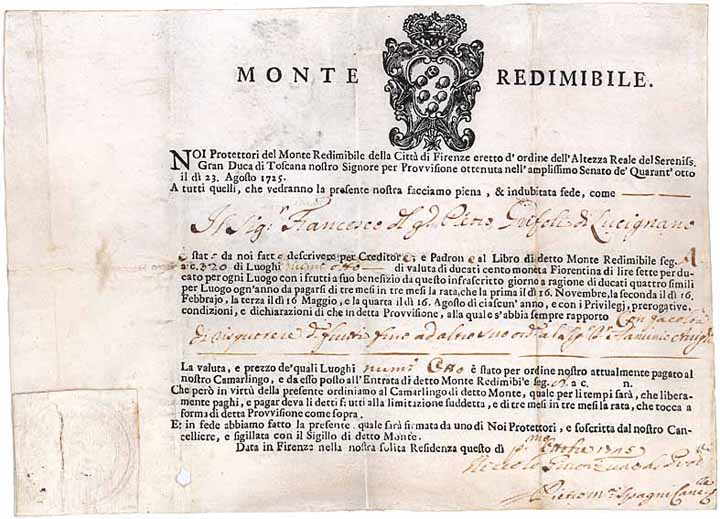 MONTE REDIMIBILE.
NOI Protettori del Monte Redimibile della Città di Firenze eretto d'ordine dell'Altezza Reale del Sereniss.
Gran Duca di Toscana nostro Signore per Provvisione ottenuta nell'amplissimo Senato de' Quarant'otto
il dì 23. Agosto 1725.
A tutti quelli, che vedranno la presente nostra facciamo piena, & indubitata fede, come
Il Sig.r Francesco di Lucignano
è stato da noi fatto descrivere per Creditore e Padrone al Libro di detto Monte Redimibile seg. A
a c. 320 di Luoghi num.o otto di valuta di ducati cento moneta Fiorentina di lire sette per du-
cato per ogni Luogo con i frutti a suo benefizio da questo infrascritto giorno a ragione di ducati quattro simili
per Luogo ogn'anno da pagarsi di tre mesi in tre mesi la rata, che la prima il dì 16. Novembre, la seconda il dì 16.
Febbrajo, la terza il dì 16 Maggio, e la quarta il dì 16. Agosto di ciascun'anno, e con i Privilegj, prerogative,
condizioni, e dichiarazioni di che in detta Provvisione, alla quale s'abbia sempre rapporto Con facoltà
di riscuotere i frutti fino ad altro suo ord.
La valuta, e prezzo de' quali Luoghi num.o Otto è stato per ordine nostro attualmente pagato al
nostro Camarlingo, e da esso posto all'Entrata di detto Monte Redimibile seg. A. a c. n.
Che però in virtù della presente ordiniamo al Camarlingo di detto Monte, quale per li tempi sarà, che libera-
mente paghi, e pagar deva li detti frutti alla limitazione suddetta, e di tre mesi in tre mesi la rata, che tocca a
forma di detta Provvisione come sopra.
E in fede abbiamo fatto la presente, quale sarà firmata da uno di Noi Protettori, e soscritta dal nostro Can-
celliere, e sigillata con il Sigillo di detto Monte.
Data in Firenze nella nostra solita Residenza questo dì p.mo